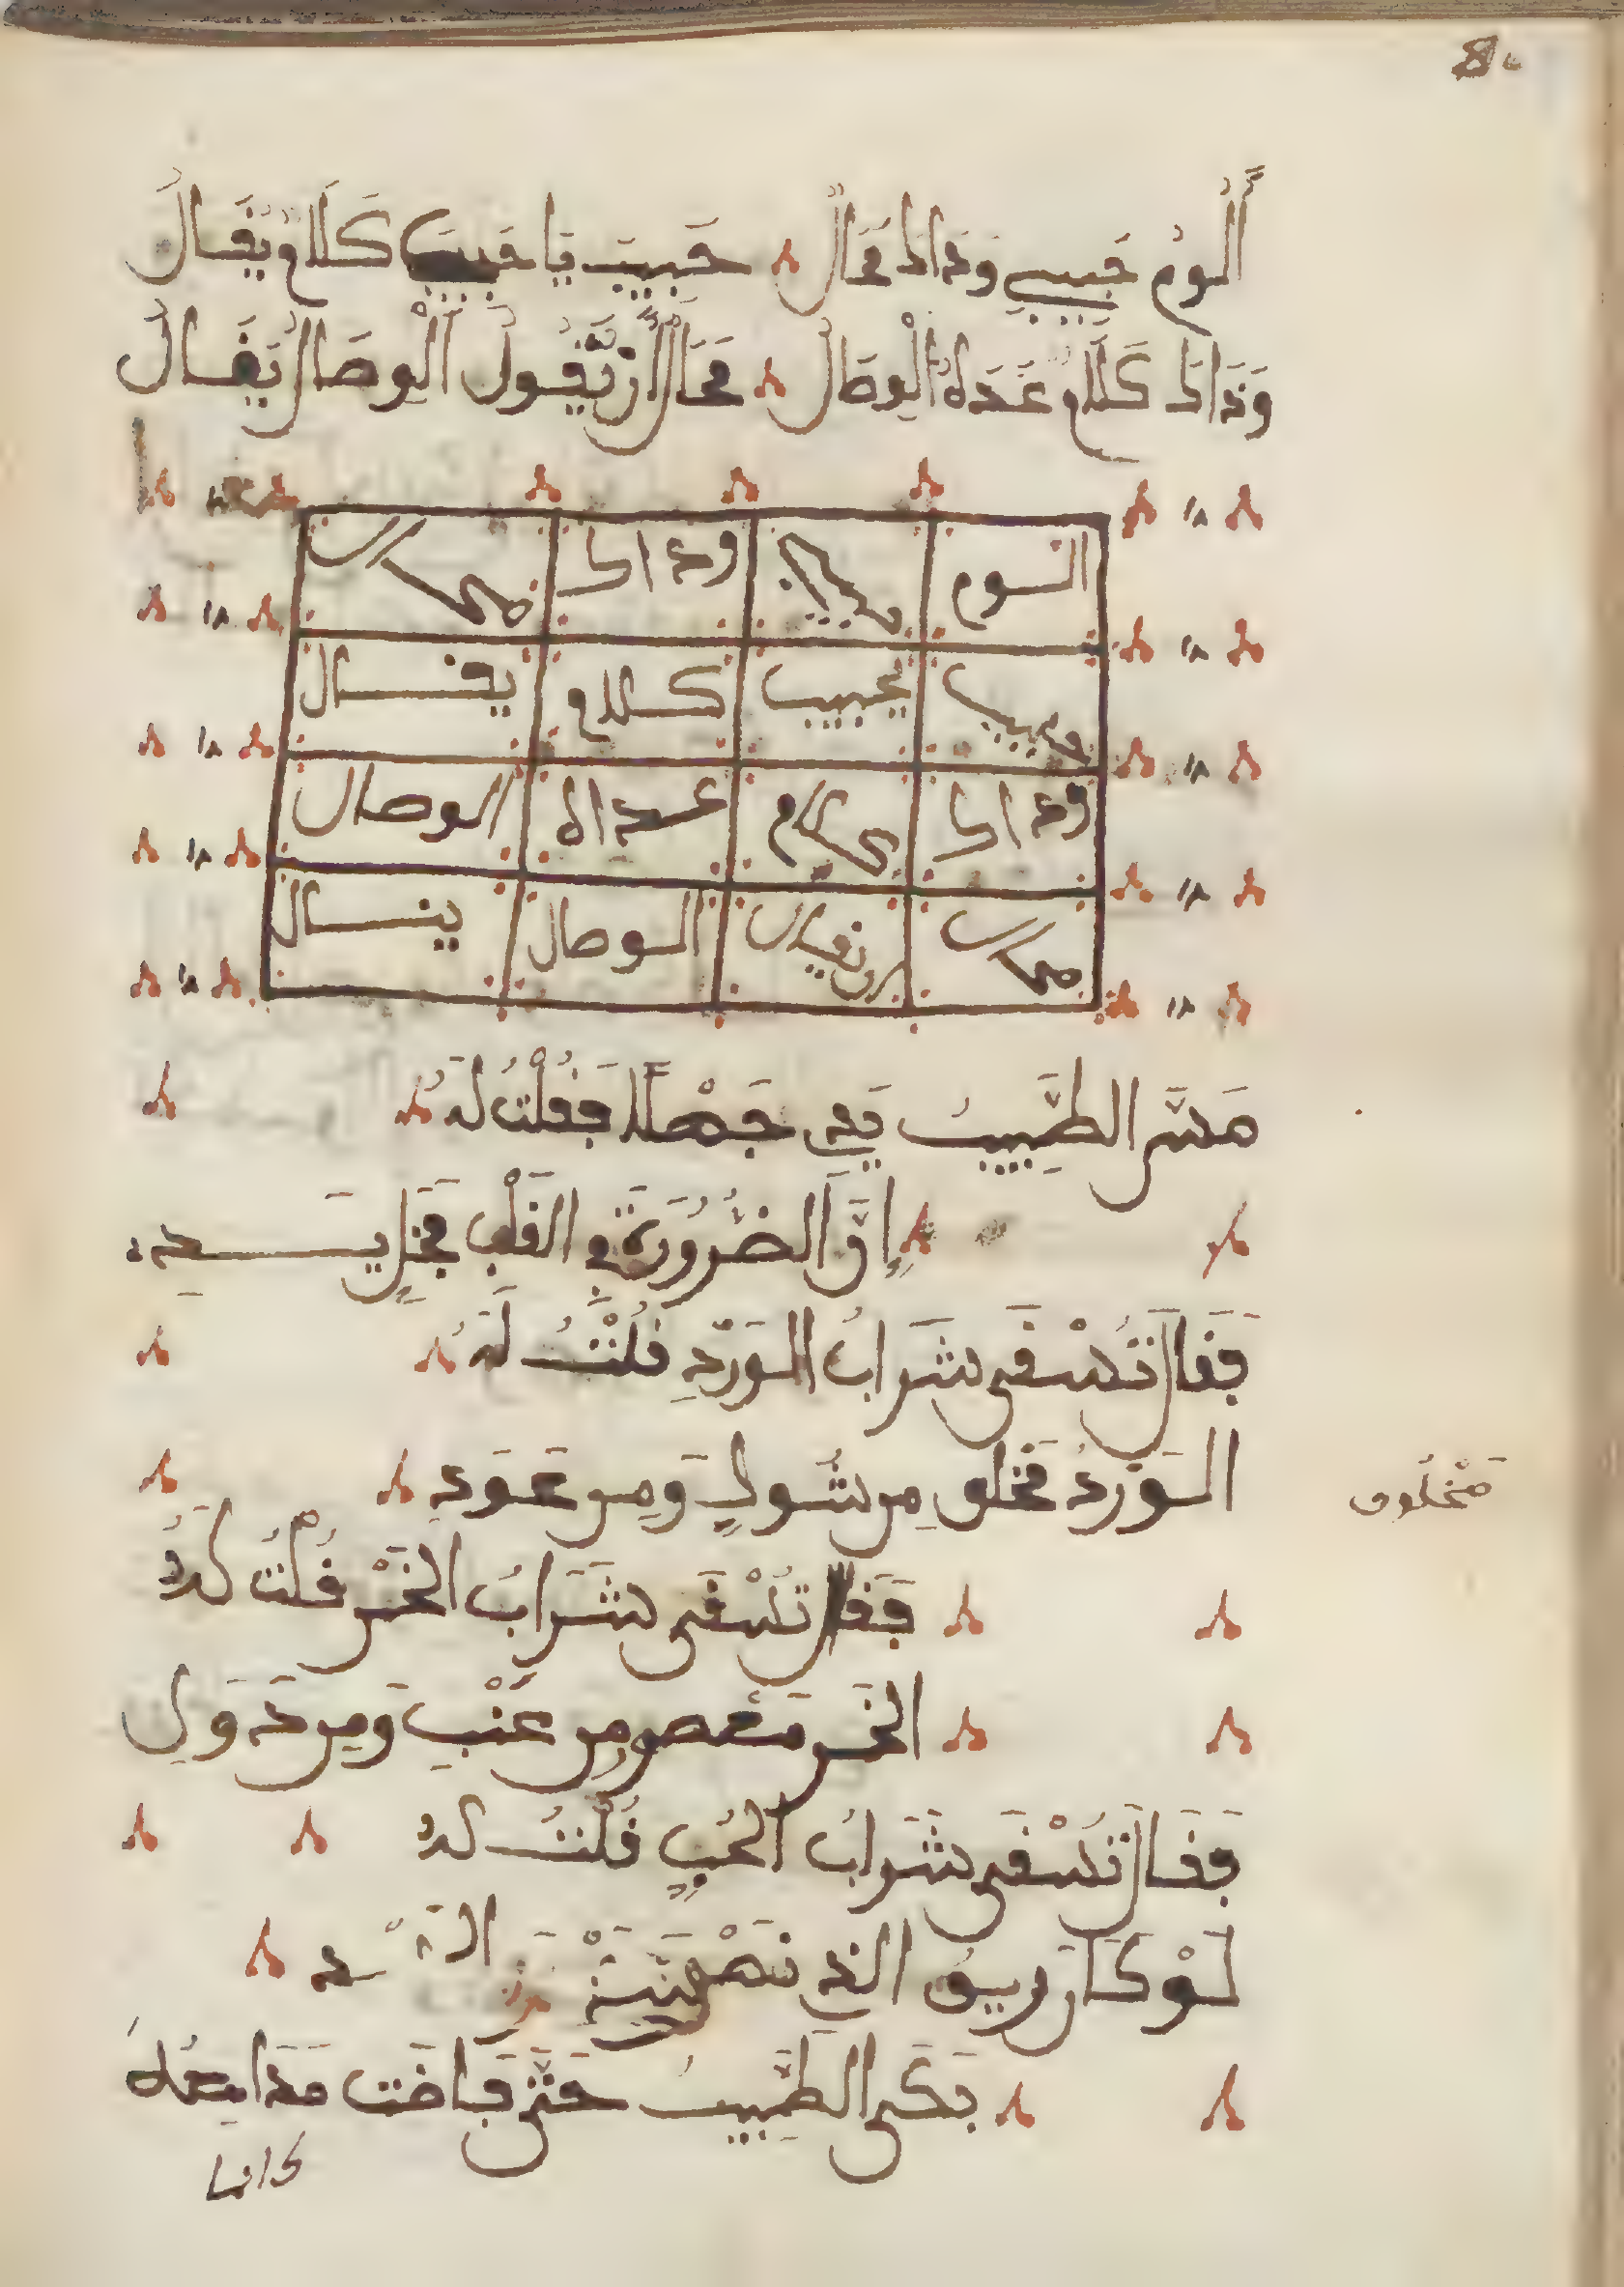 أَلُومُ حَبِيبِي وَذَاكَ مَحَالُ حَبِيبَ يَا حَبِيبَ كَلَامُ يُقَالُ
وَذَاكَ كَلَامُ عَدَاهُ الْوِصَالُ مَحَالٌ أَنْ تَقُولُ الْوِصَالَ يُقَالُ
الوم حبيبي وذاك محال
حبيب يحبيب كلام يقال
وذاك كلام عداه الوصال
محال ان تقول الوصال ينال
مَسَّ الطَّبِيبُ يَدِي جَهْلًا فَقُلْتُ لَهُ
إِنَّ الضَّرُورَةَ فِي الْقَلْبِ فَخَلِّ يَدِ
فَقَالَ تُسْقَى شَرَابُ الْوَرْدِ قُلْتُ لَهُ
الْوَرْدُ مَخْلُوق مِن شَوْكٍ وَمِن عَوَدِ
مَخْلُوق
فَقَالَ تُسْقَى شَرَابُ الْخَمْرِ قُلْتُ لَهُ
الْخَمْرِ مَعْصُور مِن عِنَبٍ وَمِن دَوَلِ
فَقَالَ تُسْقَى شَرَابُ الْحُبِّ قُلْتُ لَهُ
لَوْ كَانَ رِيقُ الذِي
بَكَى الطَّبِيبُ حَتَّى فَاضَت مَدَامِعُهُ